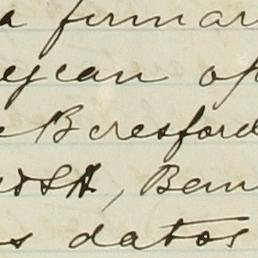 a firmar
dejean of
Beresford
, Ben
s datos